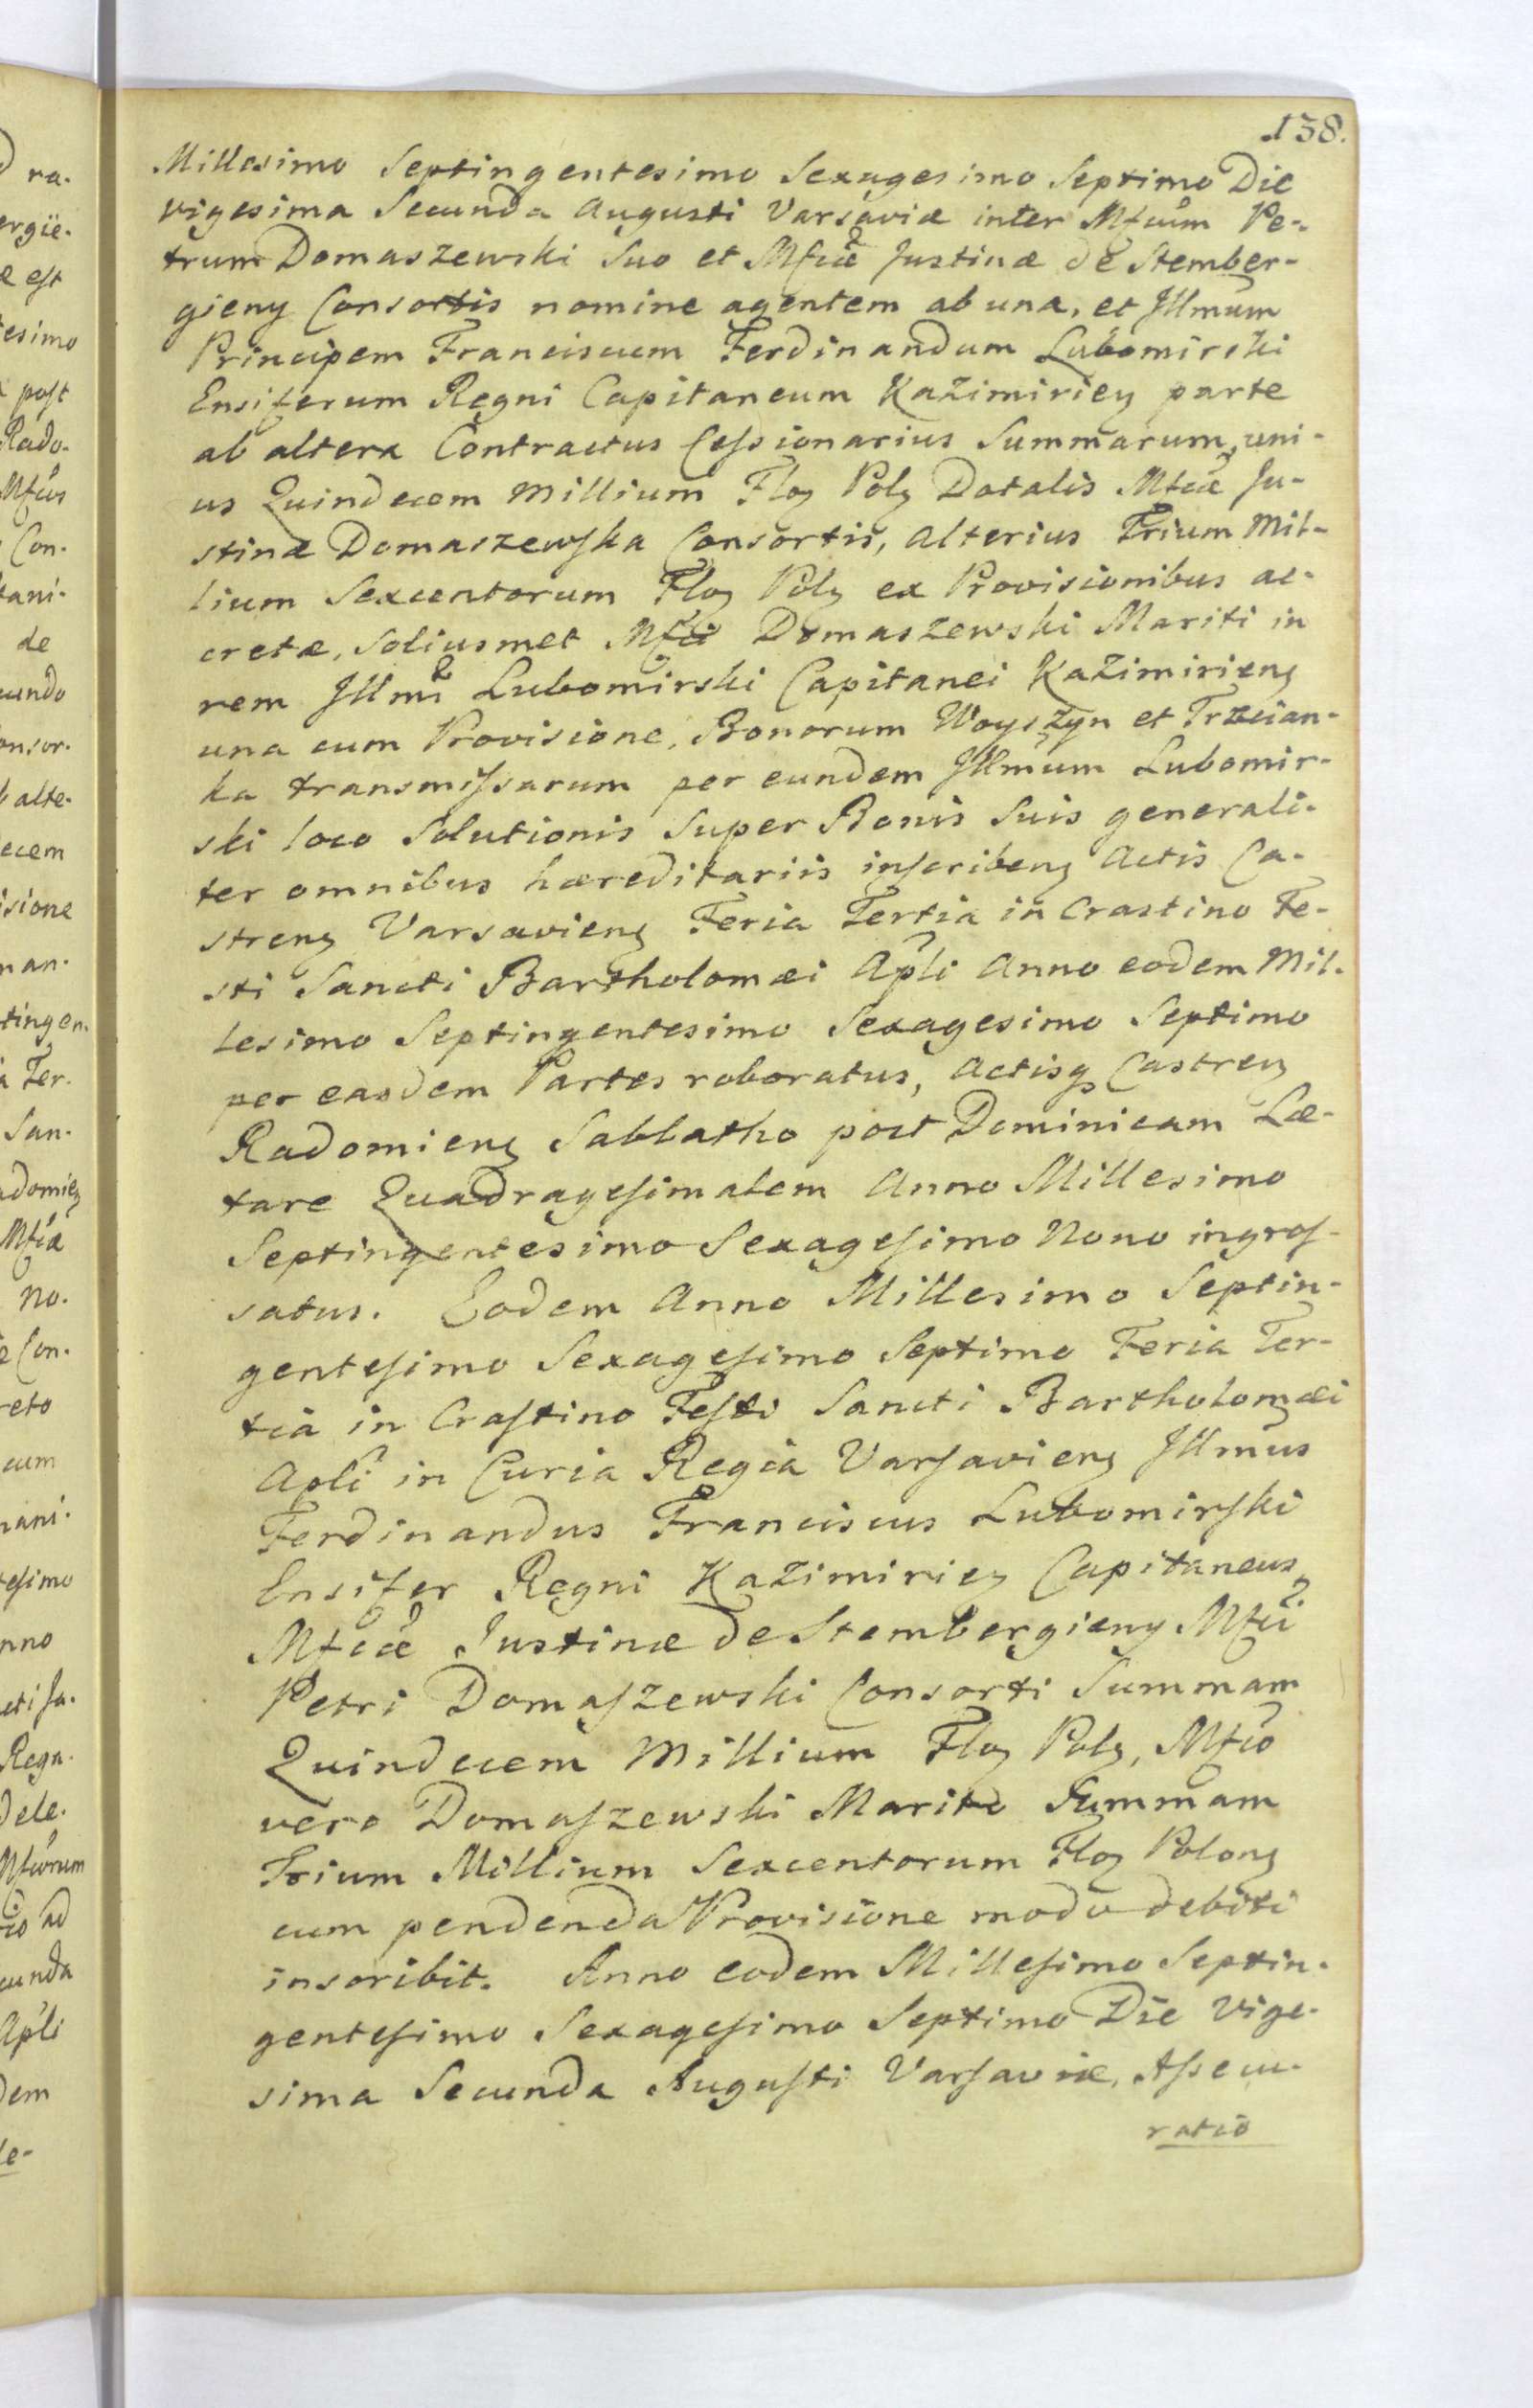 138.
Millesimo Septingentesimo Sexagesimo Septimo Die
vigesima Secunda Augusti Varsaviæ inter Mfcum Pe-
trum Domaszewski Suo et Mfcæ Justinæ de Stember-
gieny Consortis nomine agentem ab una, et Illmum
Principem Franciscum Ferdinandum Lubomirski
Ensiferum Regni Capitaneum Kazimirieꝫ parte
ab altera Contractus Cessionarius Summarum, uni-
us Quindecem Millium Floꝫ Polꝫ Dotalis Mfcæ Ju-
stinæ Domaszewska Consortis, alterius Trium Mil-
lium Sexcentorum Floꝫ Polꝫ ex Provisionibus ac-
cretæ, Soliusmet Mfci Domaszewski Mariti in
rem Illmi Lubomirski Capitanei Kazimirienꝫ
una cum Provisione, Bonorum Woyszyn et Trzcian-
ka transmissarum per eundem Illmum Lubomir-
ski loco Solutionis Super Bonis Suis generali-
ter omnibus hæreditariis inscribenꝫ Actis Ca-
strenꝫ Varsavienꝫ Feria Tertia in Crastino Fe-
sti Sancti Bartholomæi Apli Anno eodem Mil-
lesimo Septingentesimo Sexagesimo Septimo
per easdem Partes roboratus, Actisqꝫ Castrenꝫ
Radomienꝫ Sabbatho post Dominicam Læ-
tare Quadragesimalem Anno Millesimo
Septingentesimo Sexagesimo Nono ingros-
satus. Eodem Anno Millesimo Septin-
gentesimo Sexagesimo Septimo Feria Ter-
tia in Crastino Festi Sancti Bartholomæi
Apli in Curia Regia Varsavienꝫ Illmus
Ferdinandus Franciscus Lubomirski
Ensifer Regni Kazimirieꝫ Capitaneus,
Mfcæ Justinæ de Stembergieny Mfci
Petri Domaszewski Consorti Summam
Quindecem Millium Floꝫ Polꝫ, Mfco
vero Domaszewski Marito Summam
Trium Millium Sexcentorum Floꝫ Polonꝫ
cum pendenda Provisione modo debiti
inscribit. Anno eodem Millesimo Septin-
gentesimo Sexagesimo Septimo Die Vige-
sima Secunda Augusti Varsaviæ, Assecu-
ratio